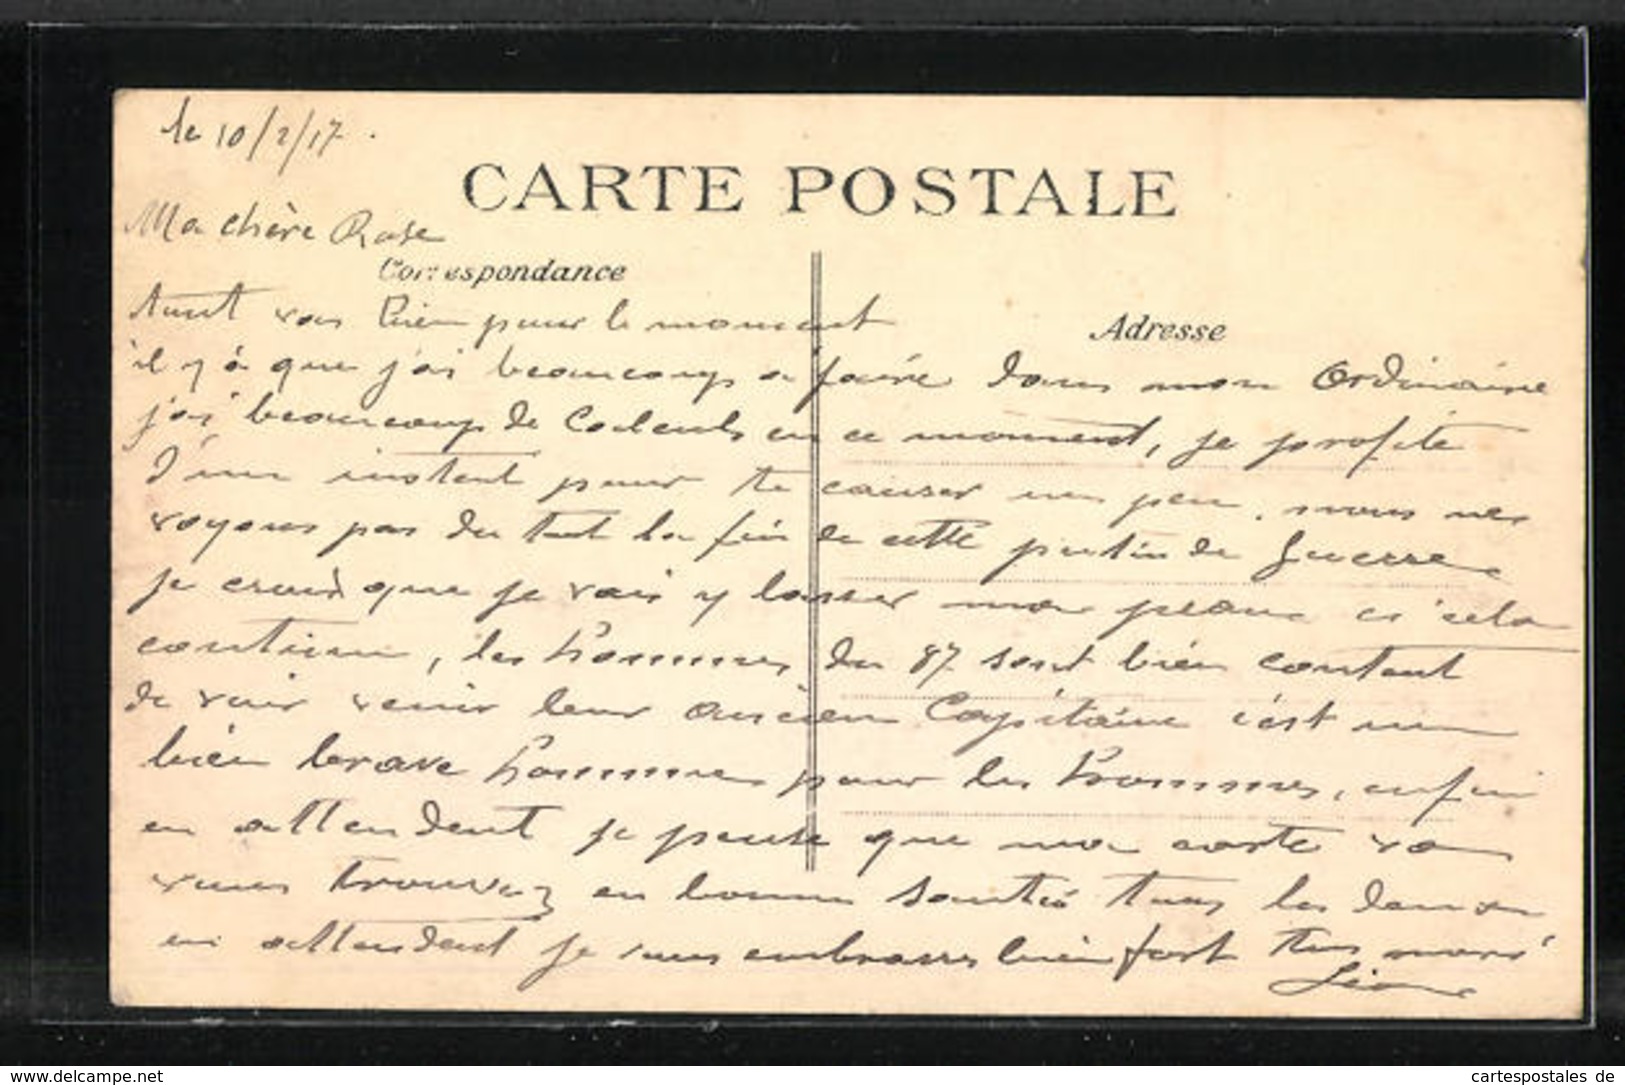 le 10/2/17.
CARTE POSTALE
Ma chère Rose
Correspondance
tout vas bien pour le moment
Adresse
il y à que j'ai beaucoup a faire dans mon Ordinaire
j'ai beaucoup de Calculs en ce moment, je profite
d'un instant pour te causer un peu. nous ne
voyons pas du tout la fin de cette putin de guerre
je crois que je vais y laisser ma peau si cela
continue, les hommes du 87 sont bien content
de voir venir leur ancien Capitaine c'est un
bien brave hommes pour les hommes, enfin
en attendent je pense que ma carte va
vous trouvez en bonne santée tous les deux
en attendent je vous embrasse bien fort ton mari
Léon
www.delcampe.net
cartespostales de